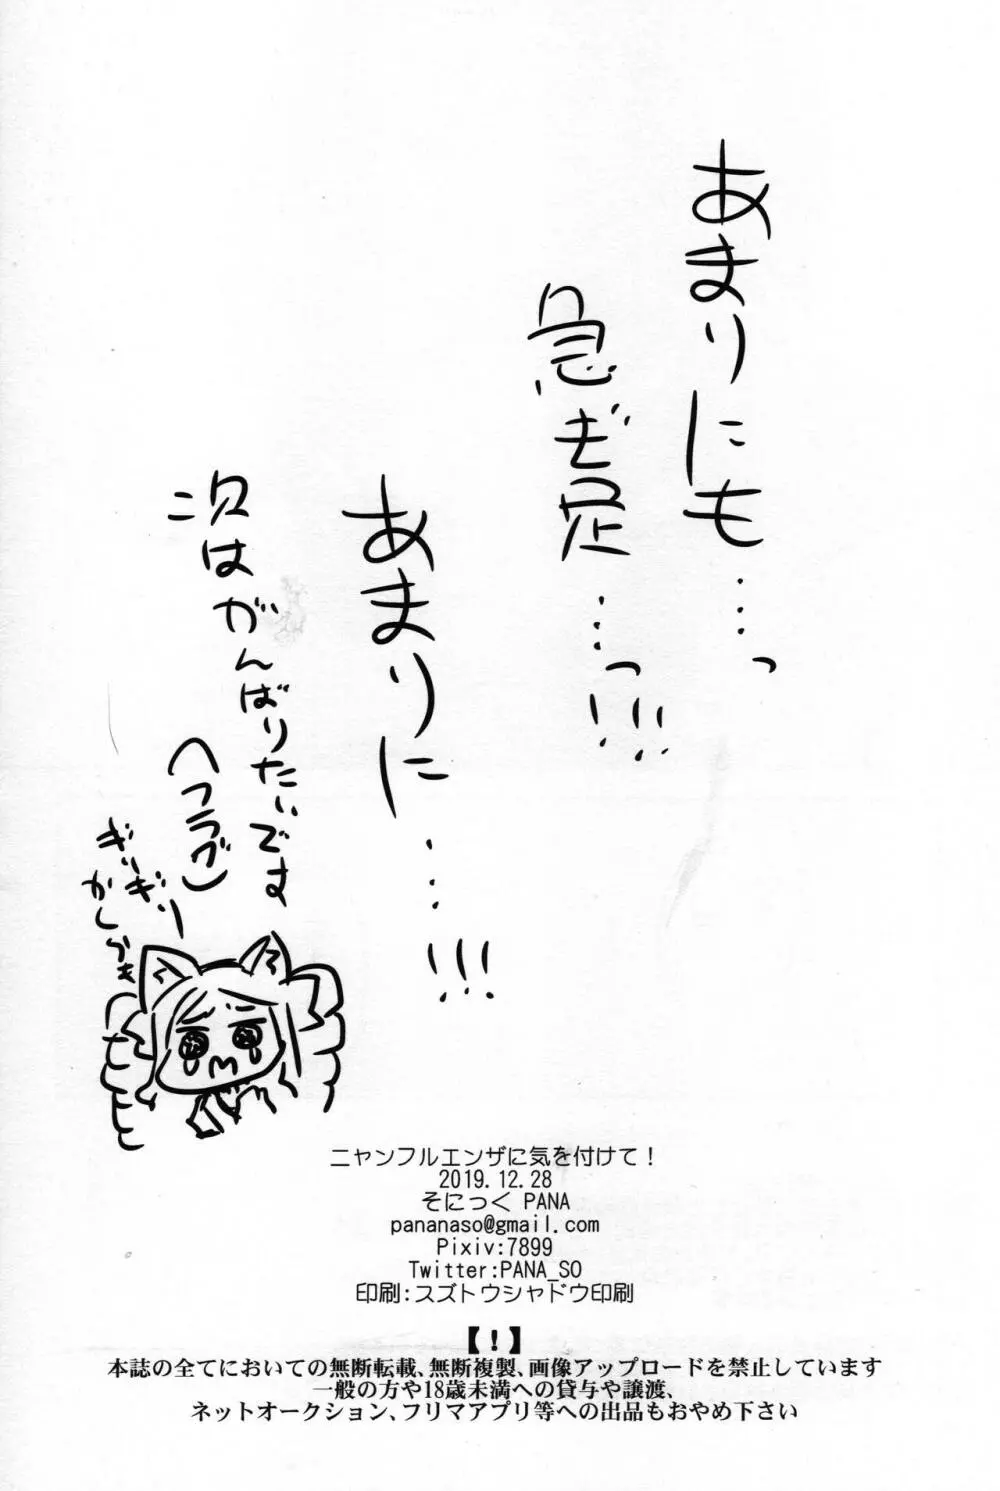 あまりにも…っ
急ぎ足…っ!!!
あまりに…!!!
次はがんばりたいです
(へフラグ)
ぎりぎり
ニャンフルエンザに気を付けて!
2019.12.28
そにっく PANA
pananaso@gmail.com
Pixiv:7899
Twitter:PANA_SO
印刷:スズトウシャドウ印刷
【!】
本誌の全てにおいての無断転載、無断複製、画像アップロードを禁止しています
一般の方や18歳未満への貸与や譲渡、
ネットオークション、フリマアプリ等への出品もおやめ下さい